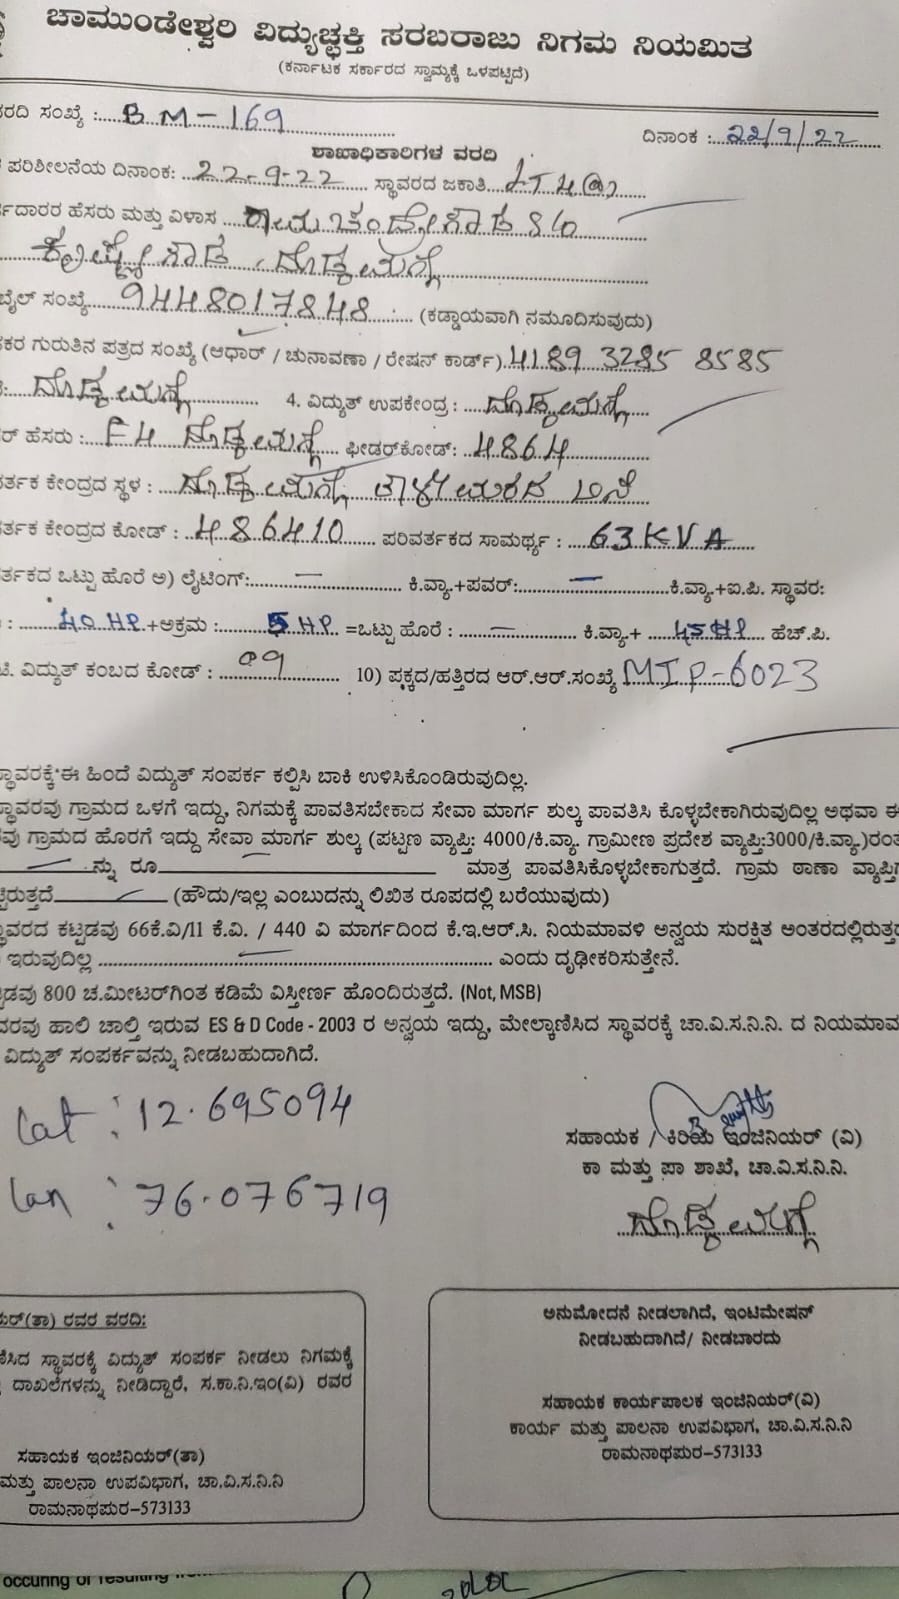 ಚಾಮುಂಡೇಶ್ವರಿ ವಿದ್ಯುಚ್ಛಕ್ತಿ ಸರಬರಾಜು ನಿಗಮ ನಿಯಮಿತ
(ಕರ್ನಾಟಕ ಸರ್ಕಾರದ ಸ್ವಾಮ್ಯಕ್ಕೆ ಒಳಪಟ್ಟಿದೆ)
ವರದಿ ಸಂಖ್ಯೆ : BM-169 ದಿನಾಂಕ : 22/9/22
ಶಾಖಾಧಿಕಾರಿಗಳ ವರದಿ
ಪರಿಶೀಲನೆಯ ದಿನಾಂಕ: 22-9-22 ಸ್ಥಾವರದ ಜಕಾತಿ LT4(a)
ರ್ಜಿದಾರರ ಹೆಸರು ಮತ್ತು ವಿಳಾಸ ರಾಮಚಂದ್ರೇಗೌಡ S/o
ಕೃಷ್ಣೇಗೌಡ, ದೊಡ್ಡಮಗ್ಗೆ
ಬೈಲ್ ಸಂಖ್ಯೆ 9448017848 (ಕಡ್ಡಾಯವಾಗಿ ನಮೂದಿಸುವುದು)
ಕರ ಗುರುತಿನ ಪತ್ರದ ಸಂಖ್ಯೆ (ಆಧಾರ್ / ಚುನಾವಣಾ / ರೇಷನ್ ಕಾರ್ಡ್) 4189 3285 8585
ದೊಡ್ಡಮಗ್ಗೆ 4. ವಿದ್ಯುತ್ ಉಪಕೇಂದ್ರ : ದೊಡ್ಡಮಗ್ಗೆ
ರ್ ಹೆಸರು : F4 ದೊಡ್ಡಮಗ್ಗೆ ಫೀಡರ್‌ಕೋಡ್: 4864
ವರ್ತಕ ಕೇಂದ್ರದ ಸ್ಥಳ : ದೊಡ್ಡಮಗ್ಗೆ
ವರ್ತಕ ಕೇಂದ್ರದ ಕೋಡ್ : 486410 ಪರಿವರ್ತಕದ ಸಾಮರ್ಥ್ಯ : 63 KVA
ವರ್ತಕದ ಒಟ್ಟು ಹೊರೆ ಅ) ಲೈಟಿಂಗ್: — ಕಿ.ವ್ಯಾ.+ಪವರ್: — ಕಿ.ವ್ಯಾ+ಐ.ಪಿ. ಸ್ಥಾವರ:
: 40 HP +ಅಕ್ರಮ : 5 HP =ಒಟ್ಟು ಹೊರೆ : — ಕಿ.ವ್ಯಾ+ 45 HP ಹೆಚ್.ಪಿ.
ಟಿ. ವಿದ್ಯುತ್ ಕಂಬದ ಕೋಡ್ : 09 10) ಪಕ್ಕದ/ಹತ್ತಿರದ ಆರ್.ಆರ್.ಸಂಖ್ಯೆ MIP-6023
ಸ್ಥಾವರಕ್ಕೆ ಈ ಹಿಂದೆ ವಿದ್ಯುತ್ ಸಂಪರ್ಕ ಕಲ್ಪಿಸಿ ಬಾಕಿ ಉಳಿಸಿಕೊಂಡಿರುವುದಿಲ್ಲ.
ಸ್ಥಾವರವು ಗ್ರಾಮದ ಒಳಗೆ ಇದ್ದು, ನಿಗಮಕ್ಕೆ ಪಾವತಿಸಬೇಕಾದ ಸೇವಾ ಮಾರ್ಗ ಶುಲ್ಕ ಪಾವತಿಸಿ ಕೊಳ್ಳಬೇಕಾಗಿರುವುದಿಲ್ಲ ಅಥವಾ ಈ
ವು ಗ್ರಾಮದ ಹೊರಗೆ ಇದ್ದು ಸೇವಾ ಮಾರ್ಗ ಶುಲ್ಕ (ಪಟ್ಟಣ ವ್ಯಾಪ್ತಿ: 4000/ಕಿ.ವ್ಯಾ. ಗ್ರಾಮೀಣ ಪ್ರದೇಶ ವ್ಯಾಪ್ತಿ:3000/ಕಿ.ವ್ಯಾ.)ರಂತೆ
ನ್ನು ರೂ ಮಾತ್ರ ಪಾವತಿಸಿಕೊಳ್ಳಬೇಕಾಗುತ್ತದೆ. ಗ್ರಾಮ ಠಾಣಾ ವ್ಯಾಪ್ತಿಗೆ
ಟ್ಟಿರುತ್ತದೆ (ಹೌದು/ಇಲ್ಲ ಎಂಬುದನ್ನು ಲಿಖಿತ ರೂಪದಲ್ಲಿ ಬರೆಯುವುದು)
ಸ್ಥಾವರದ ಕಟ್ಟಡವು 66ಕೆ.ವಿ/11 ಕೆ.ವಿ. / 440 ವಿ ಮಾರ್ಗದಿಂದ ಕೆ.ಇ.ಆರ್.ಸಿ. ನಿಯಮಾವಳಿ ಅನ್ವಯ ಸುರಕ್ಷಿತ ಅಂತರದಲ್ಲಿರುತ್ತದೆ
ಇರುವುದಿಲ್ಲ ಎಂದು ದೃಢೀಕರಿಸುತ್ತೇನೆ.
ಟ್ಟಡವು 800 ಚ.ಮೀಟರ್‌ಗಿಂತ ಕಡಿಮೆ ವಿಸ್ತೀರ್ಣ ಹೊಂದಿರುತ್ತದೆ. (Not, MSB)
ವರವು ಹಾಲಿ ಚಾಲ್ತಿ ಇರುವ ES & D Code - 2003 ರ ಅನ್ವಯ ಇದ್ದು, ಮೇಲ್ಕಾಣಿಸಿದ ಸ್ಥಾವರಕ್ಕೆ ಚಾ.ವಿ.ಸ.ನಿ.ನಿ. ದ ನಿಯಮಾವ
ವಿದ್ಯುತ್ ಸಂಪರ್ಕವನ್ನು ನೀಡಬಹುದಾಗಿದೆ.
Lat : 12.695094
Lan : 76.076719
ಸಹಾಯಕ / ಕಿರಿಯ ಇಂಜಿನಿಯರ್ (ವಿ)
ಕಾ ಮತ್ತು ಪಾ ಶಾಖೆ, ಚಾ.ವಿ.ಸ.ನಿ.ನಿ.
ದೊಡ್ಡಮಗ್ಗೆ
ಯರ್(ತಾ) ರವರ ವರದಿ:
ಣಿಸಿದ ಸ್ಥಾವರಕ್ಕೆ ವಿದ್ಯುತ್ ಸಂಪರ್ಕ ನೀಡಲು ನಿಗಮಕ್ಕೆ
ದಾಖಲೆಗಳನ್ನು ನೀಡಿದ್ದಾರೆ, ಸ.ಕಾ.ನಿ.ಇಂ(ವಿ) ರವರ
ಸಹಾಯಕ ಇಂಜಿನಿಯರ್(ತಾ)
ಮತ್ತು ಪಾಲನಾ ಉಪವಿಭಾಗ, ಚಾ.ವಿ.ಸ.ನಿ.ನಿ
ರಾಮನಾಥಪುರ-573133
ಅನುಮೋದನೆ ನೀಡಲಾಗಿದೆ, ಇಂಟಿಮೇಷನ್
ನೀಡಬಹುದಾಗಿದೆ/ ನೀಡಬಾರದು
ಸಹಾಯಕ ಕಾರ್ಯಪಾಲಕ ಇಂಜಿನಿಯರ್(ವಿ)
ಕಾರ್ಯ ಮತ್ತು ಪಾಲನಾ ಉಪವಿಭಾಗ, ಚಾ.ವಿ.ಸ.ನಿ.ನಿ
ರಾಮನಾಥಪುರ-573133
occuring or resulting